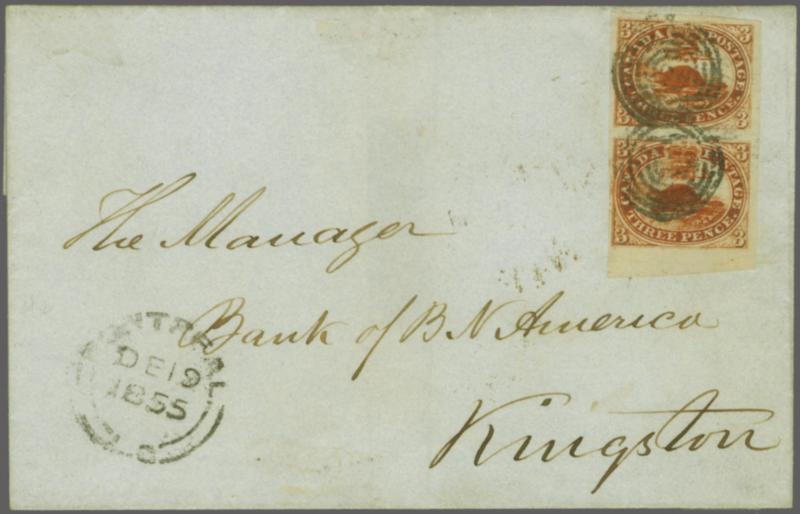 3 3
CANADA POSTAGE
PENCE
3 3
3 3
CANADA POSTAGE
THREE PENCE
3 3
The Manager
Bank of B N America
Kingston
MONTREAL
DE 19
1855
L.C